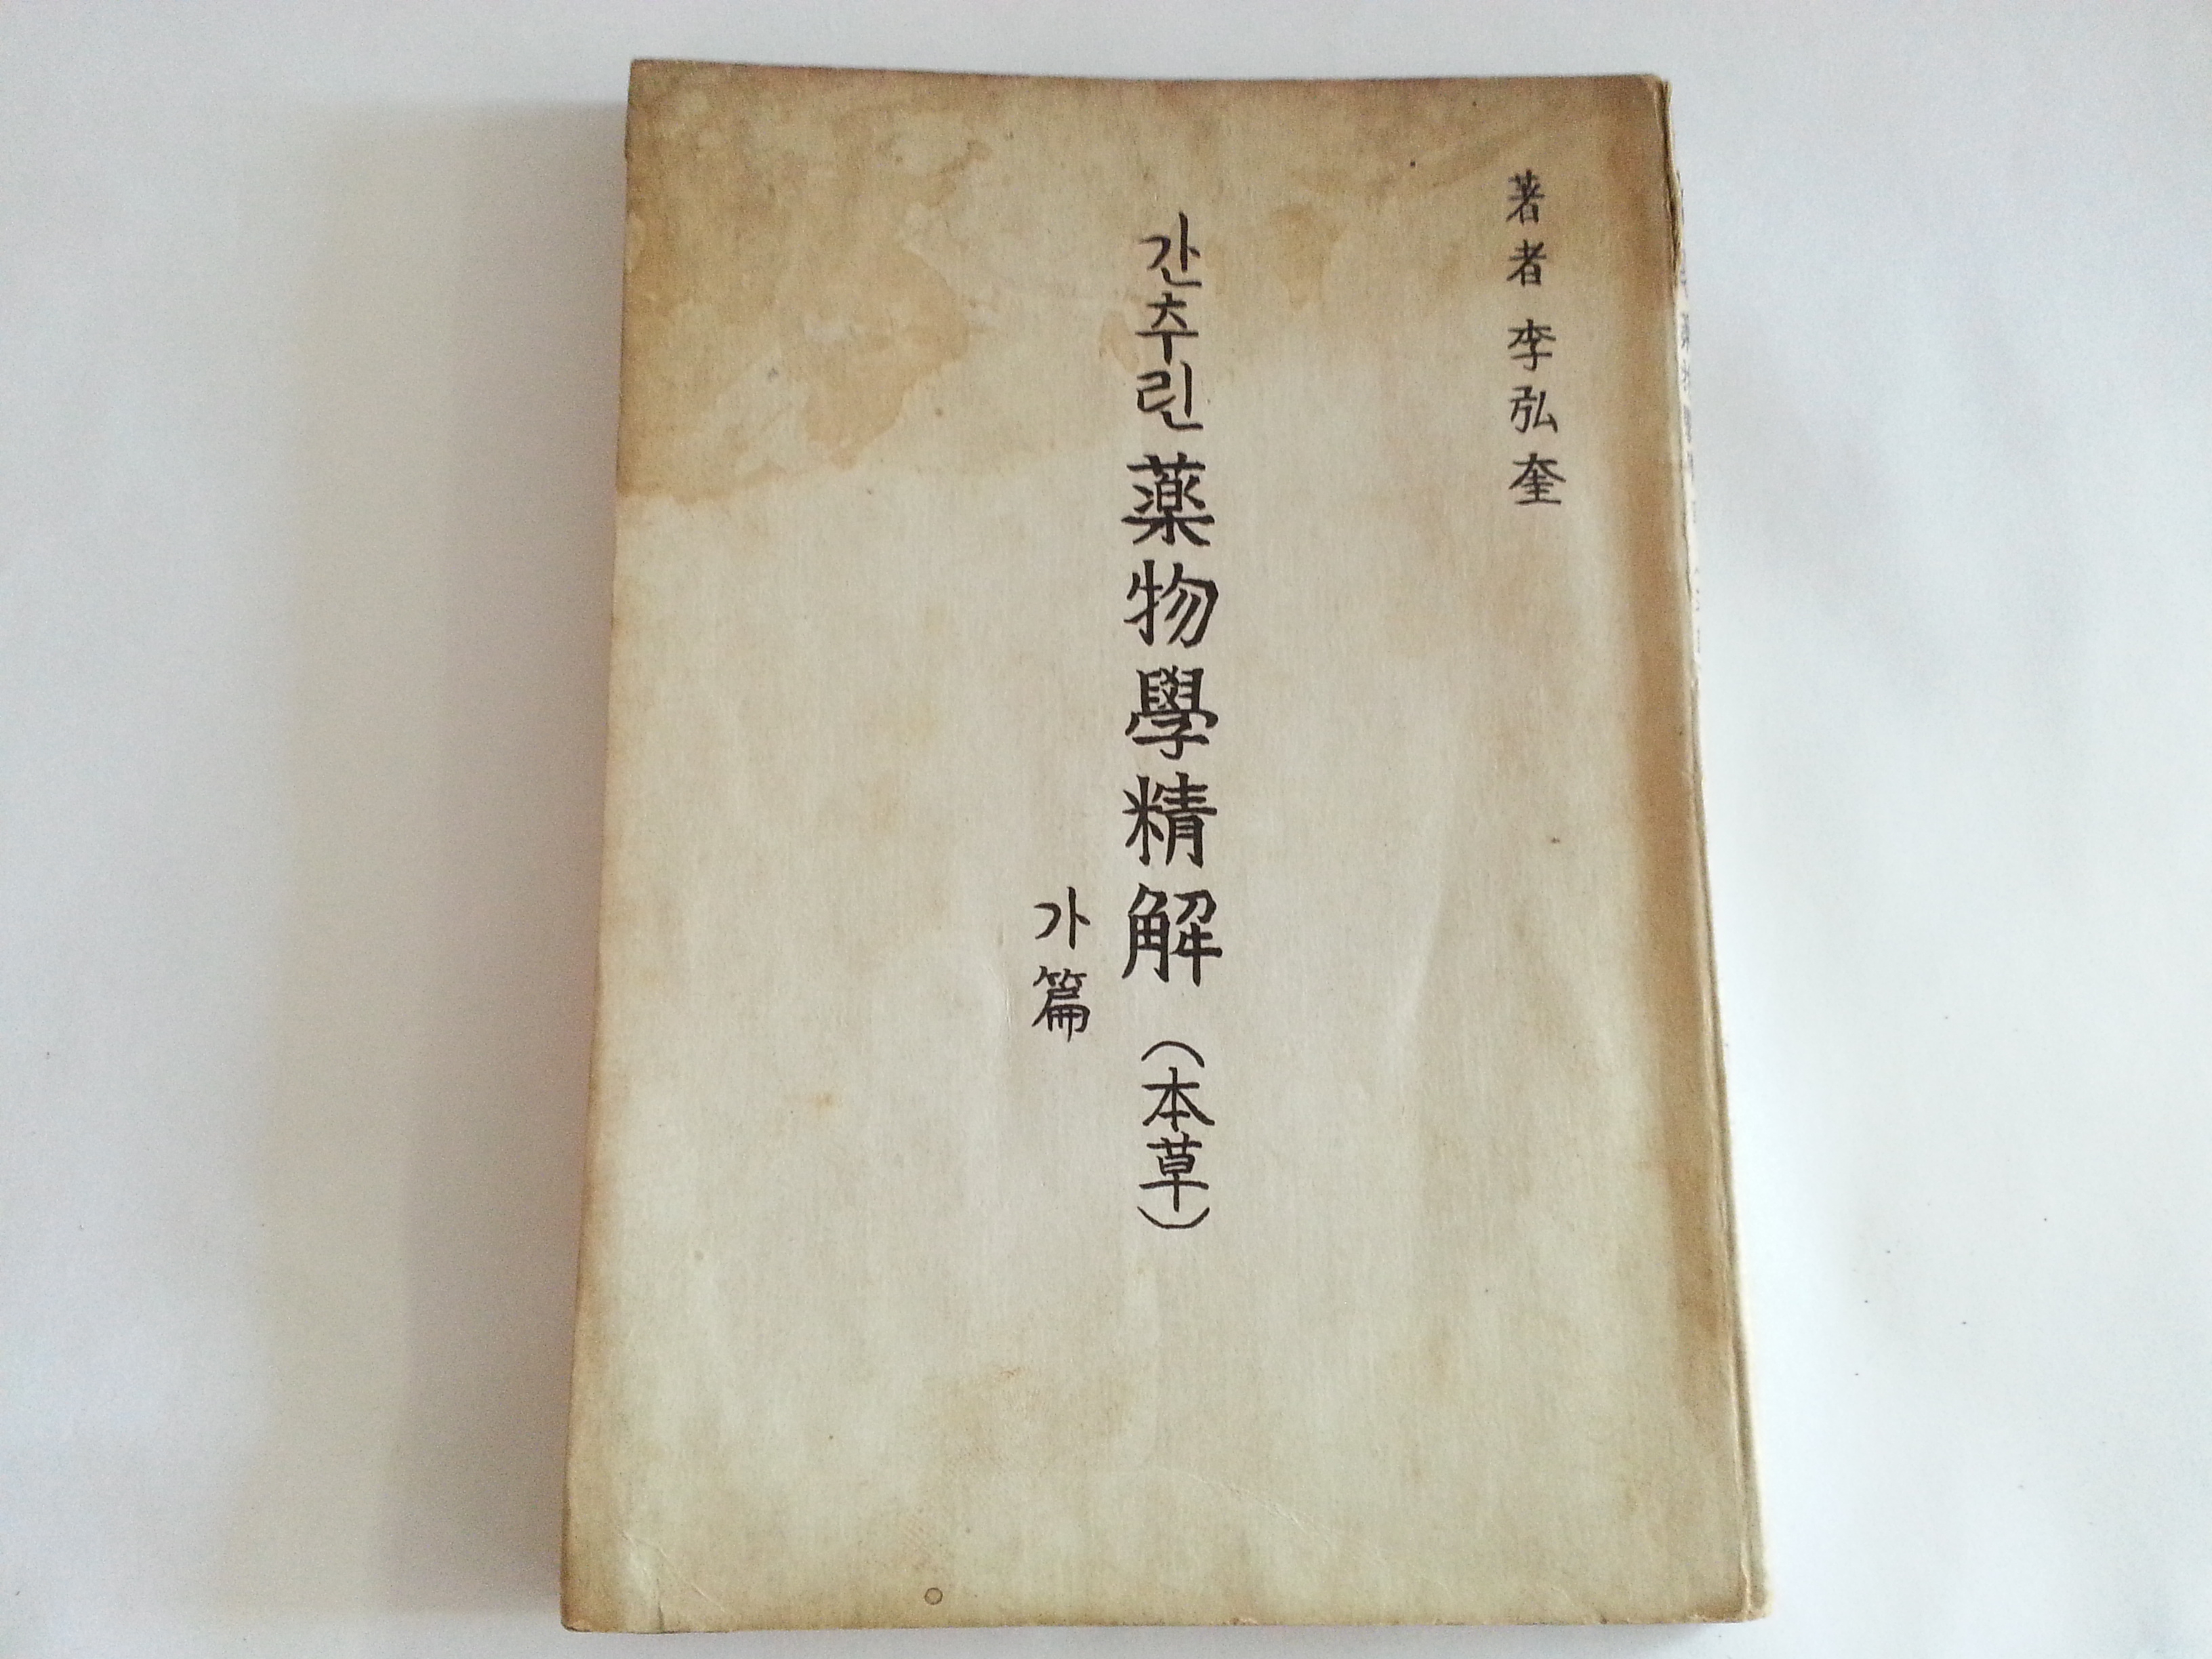 著者 李弘奎
간추린 薬物學精解 (本草)
가篇